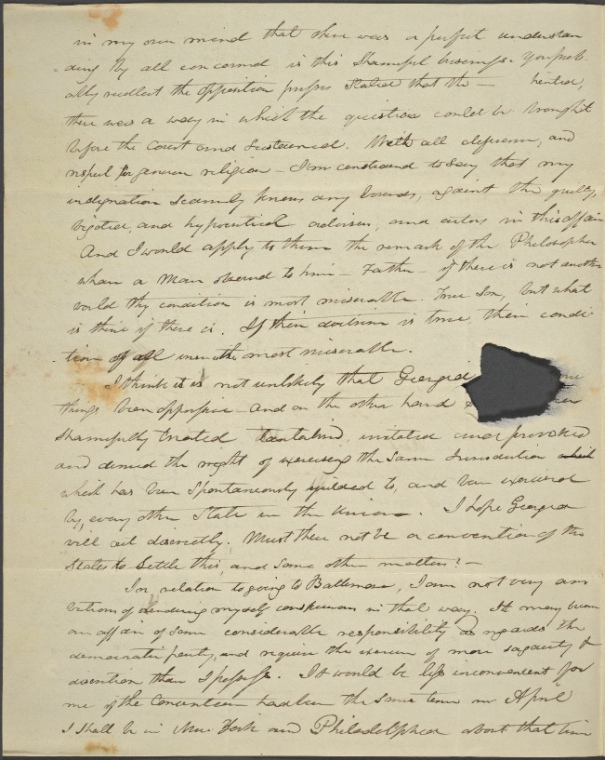 in my own mind that there was a perfect understan
ding by all concerned in this Shameful business. You prob
ably recollect the opposition presses Stated that the —
there was a way in which the question could be brought
before the Court and Sustained. With all deference, and
respect for genuine religion — I am constrained to Say that my
indignation Scarcely knows any bounds, against the guilty,
bigoted, and hypocritical advisers, and actors in this affair
And I would apply to them the remark of the Philosopher
when a Man observed to him — Father — if there is not another
world thy condition is most miserable. True Son, but what
is thine if there is. If their doctrine is true, their condi
tion of all men the most miserable.
I think it is not unlikely that Georgia
things been oppressive. And on the other hand
Shamefully treated tantalized, irritated and provoked
and denied the right of exercising the Same Jurisdiction
which has been Spontaneously yielded to, and been exercised
by, every other State in the Union. I hope Georgia
will act discreetly. Must there not be a convention of the
States to Settle this, and Some other matters? —
In relation to going to Baltimore, I am not very am
bitious of rendering myself conspicuous in that way. It may be
an affair of Some considerable responsibility as regards the
democratic party, and require the exercise of more sagacity &
discretion than I possess. It would be less inconvenient for
me if the Convention had been the Same time in April
I Shall be in New York and Philadelphia about that time